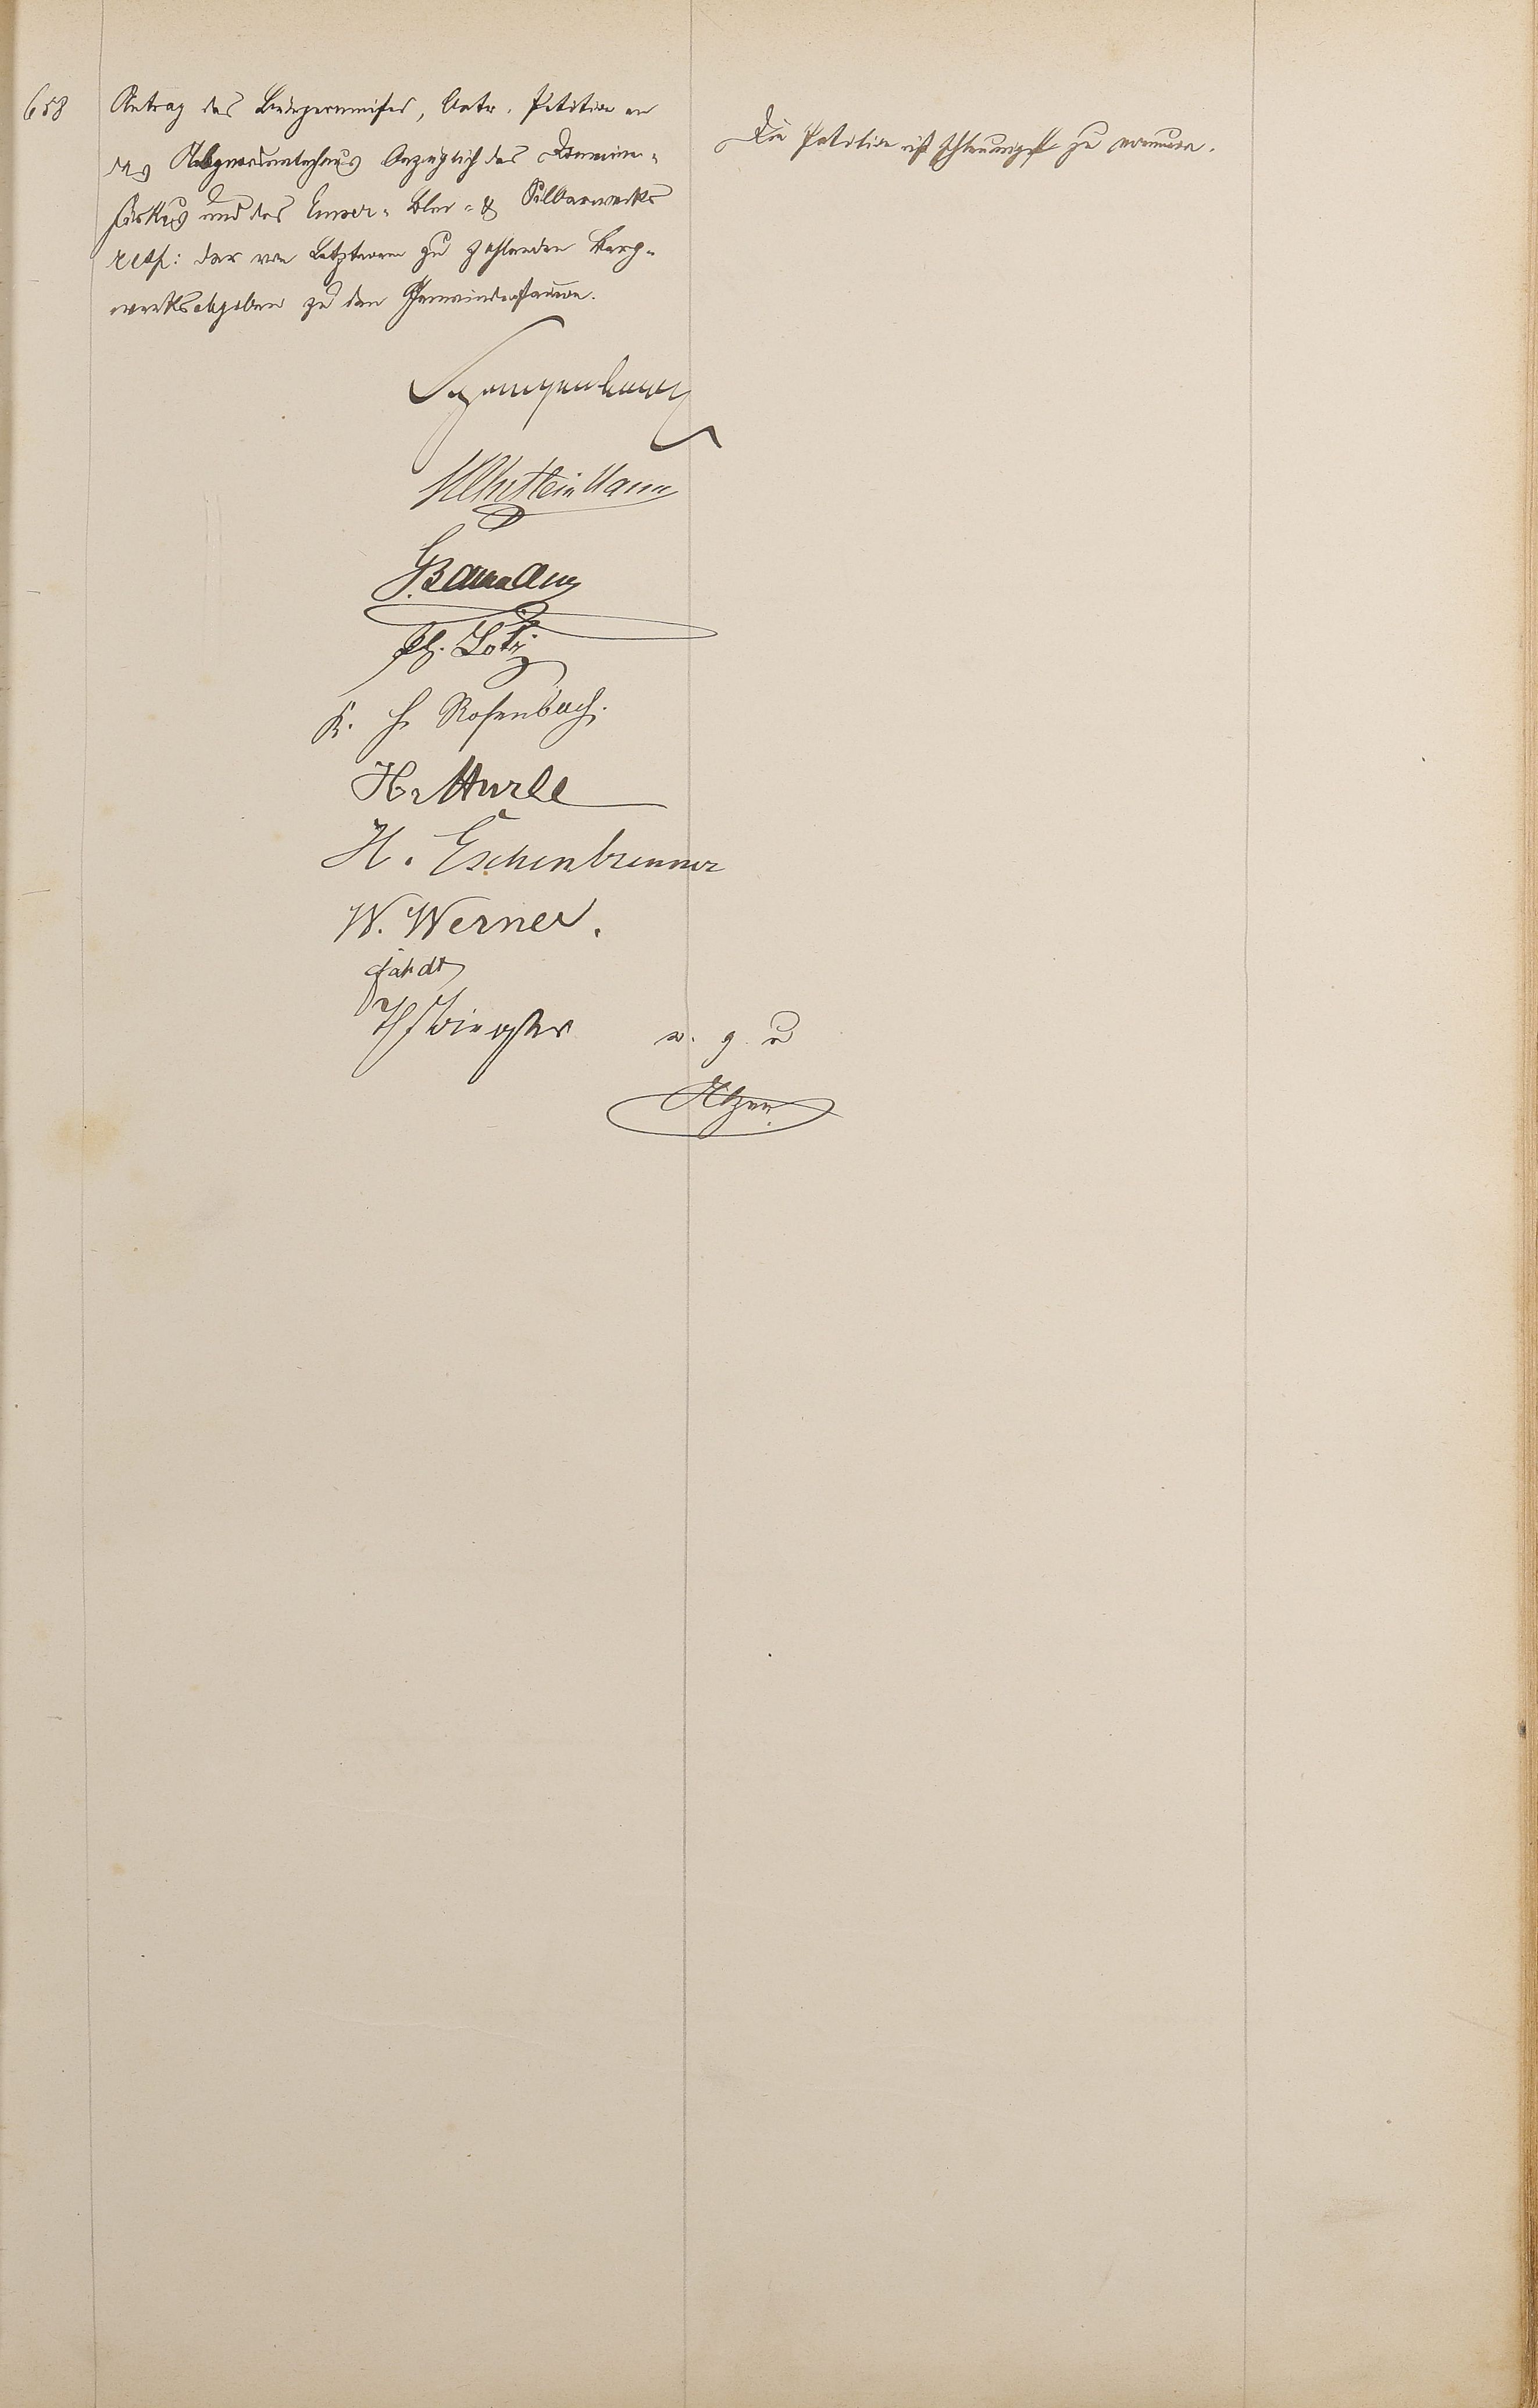 658
Antrag des Bürgermeisters, betr. Petition an
das Abgeordnetenhaus bezüglich des Domänen-
fiskus und des Emser-Blei-& Silberwerks
resp: der von Letzterem zu zahlenden Berg-
werksabgaben zu den Gemeindesteuern.
Die Petition ist schleunigst zu
Spangenberg
G. Baumann
Ph. Lotz
K. H. Rosenbach.
H. Eschenbrenner
W. Werner.
v. g. u